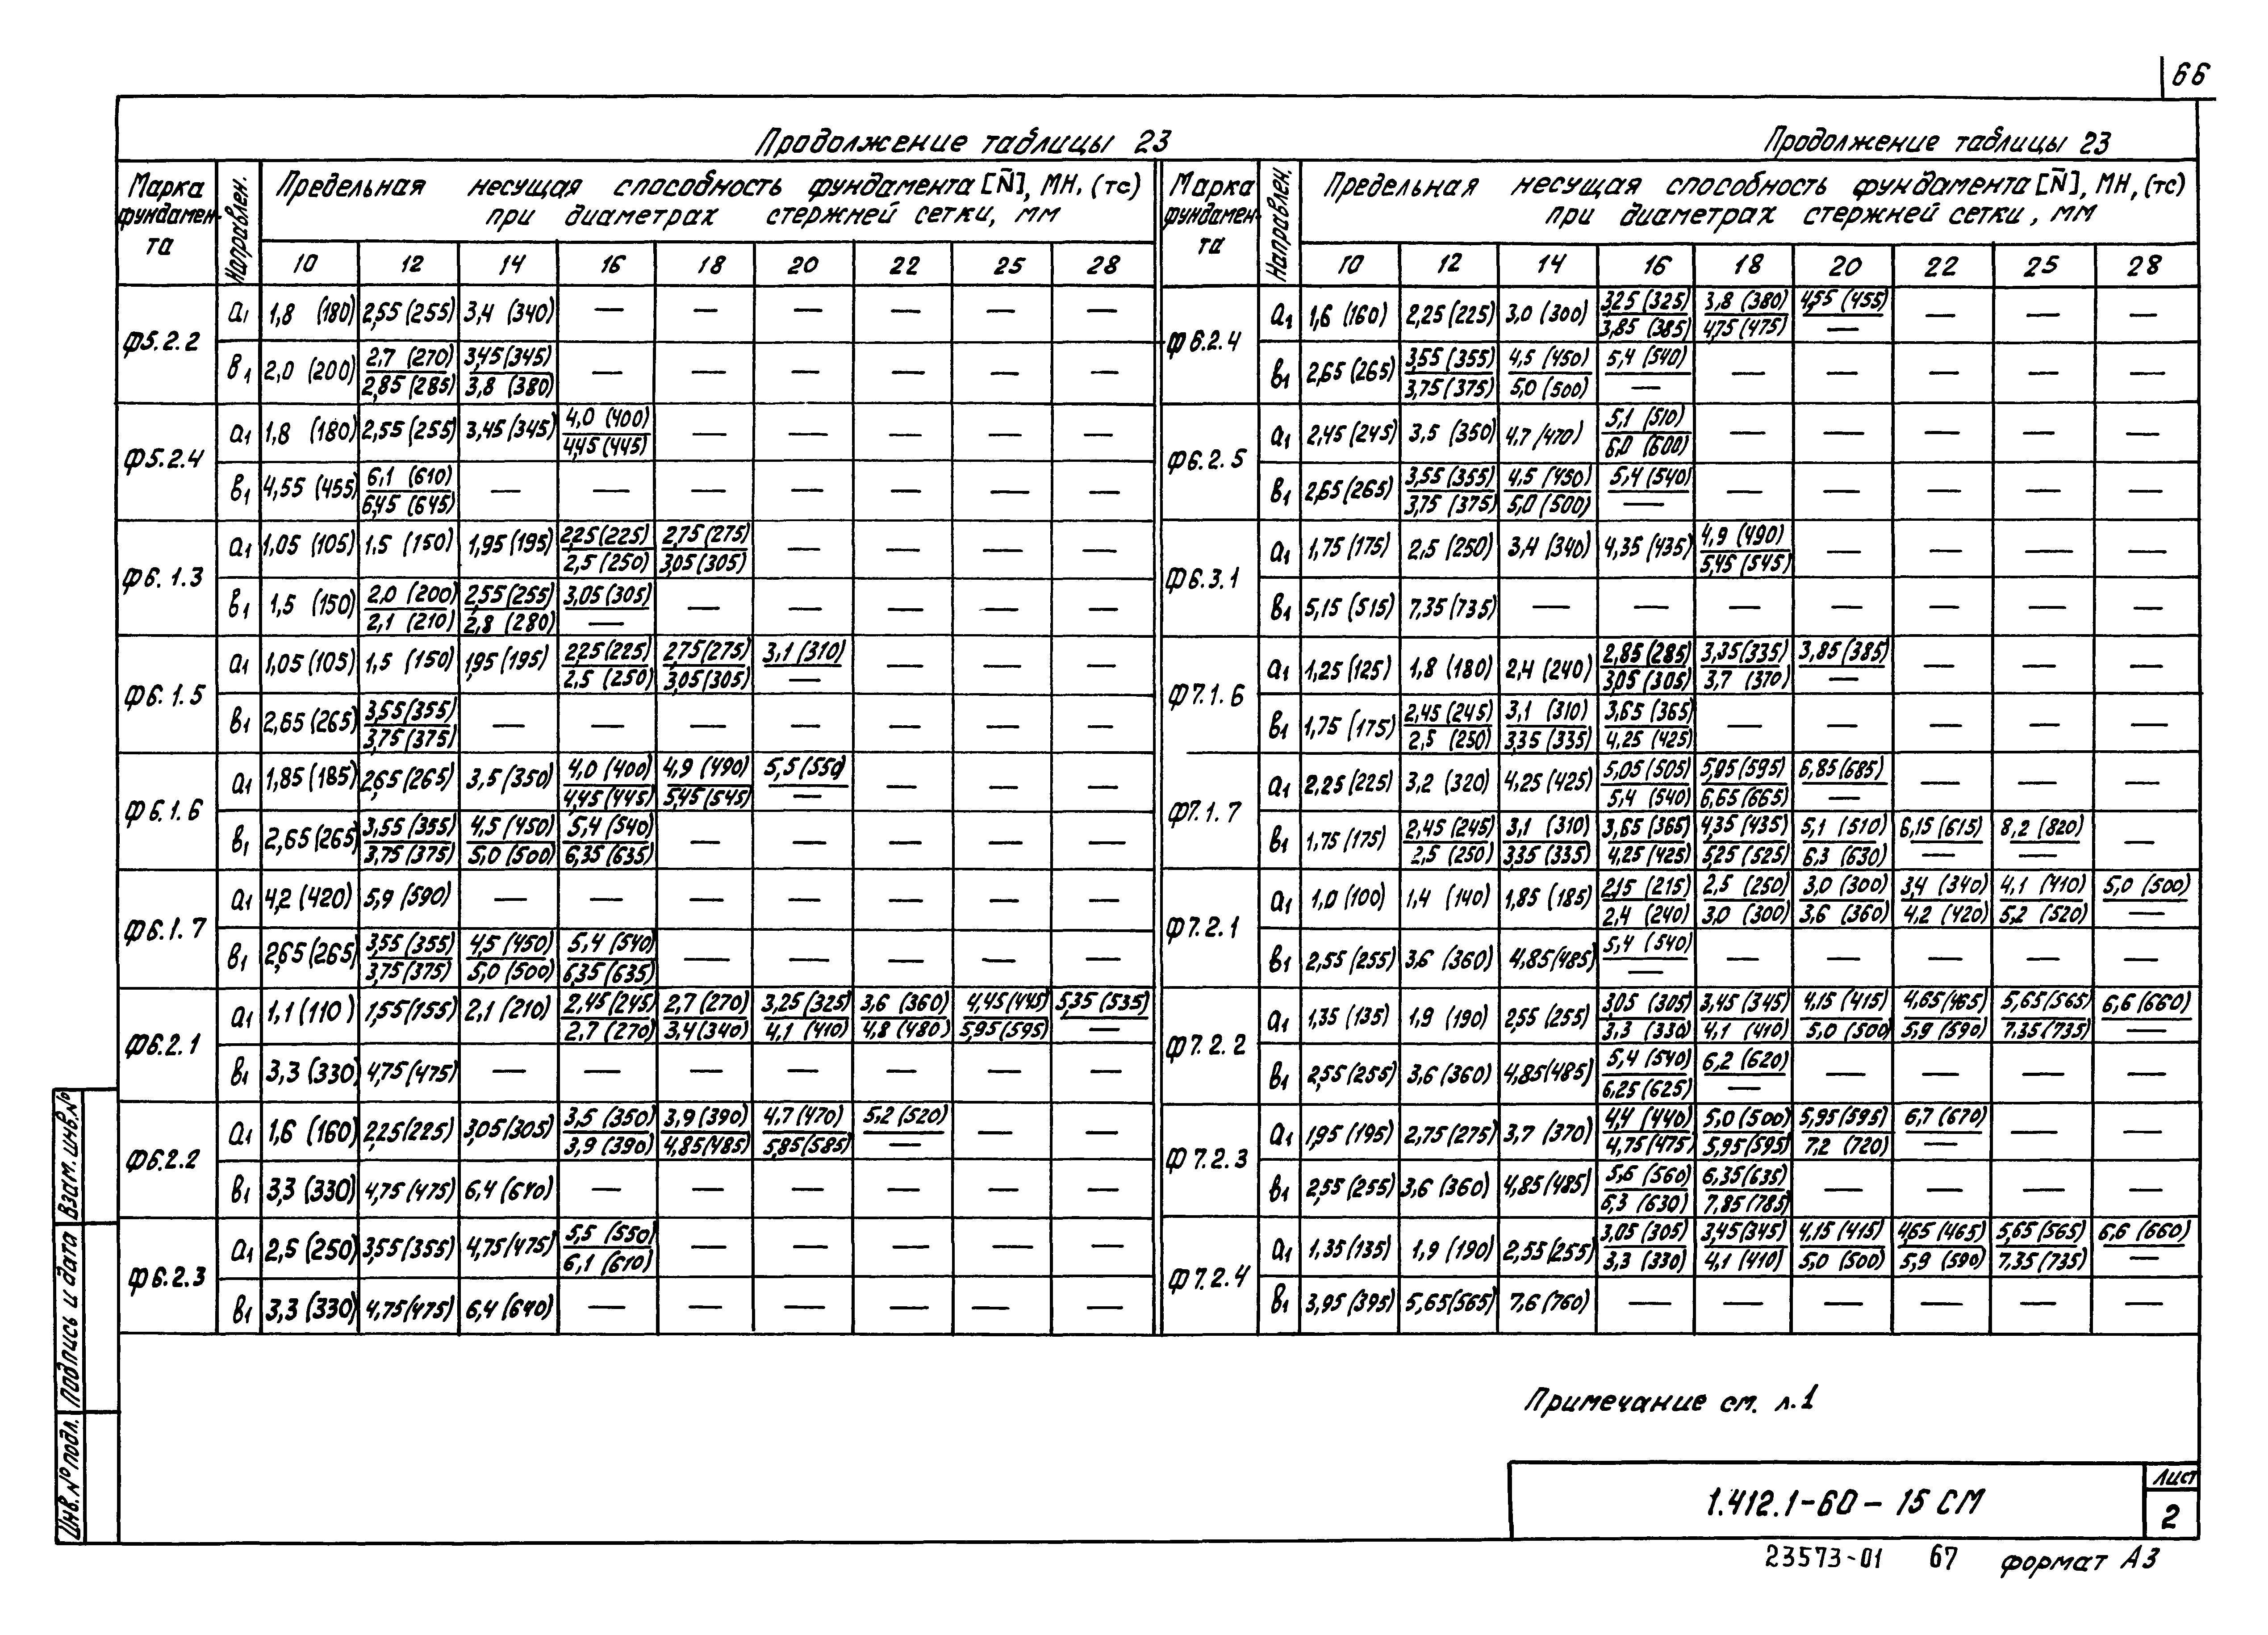 66
Продолжение таблицы 23
Марка фундамен-та Направлен. Предельная несущая способность фундамента [N̄], МН, (тс)
при диаметрах стержней сетки, мм
10 12 14 16 18 20 22 25 28
Ф5.2.2 а1 1,8 (180) 2,55 (255) 3,4 (340) — — — — — —
в1 2,0 (200) 2,7 (270)/2,85 (285) 3,45 (345)/3,8 (380) — — — — — —
Ф5.2.4 а1 1,8 (180) 2,55 (255) 3,45 (345) 4,0 (400)/4,45 (445) — — — — —
в1 4,55 (455) 6,1 (610)/6,45 (645) — — — — — — —
Ф6.1.3 а1 1,05 (105) 1,5 (150) 1,95 (195) 2,25 (225)/2,5 (250) 2,75 (275)/3,05 (305) — — — —
в1 1,5 (150) 2,0 (200)/2,1 (210) 2,55 (255)/2,8 (280) 3,05 (305)/— — — — — —
Ф6.1.5 а1 1,05 (105) 1,5 (150) 1,95 (195) 2,25 (225)/2,5 (250) 2,75 (275)/3,05 (305) 3,1 (310)/— — — —
в1 2,65 (265) 3,55 (355)/3,75 (375) — — — — — — —
Ф6.1.6 а1 1,85 (185) 2,65 (265) 3,5 (350) 4,0 (400)/4,45 (445) 4,9 (490)/5,45 (545) 5,5 (550)/— — — —
в1 2,65 (265) 3,55 (355)/3,75 (375) 4,5 (450)/5,0 (500) 5,4 (540)/6,35 (635) — — — — —
Ф6.1.7 а1 4,2 (420) 5,9 (590) — — — — — — —
в1 2,65 (265) 3,55 (355)/3,75 (375) 4,5 (450)/5,0 (500) 5,4 (540)/6,35 (635) — — — — —
Ф6.2.1 а1 1,1 (110) 1,55 (155) 2,1 (210) 2,45 (245)/2,7 (270) 2,7 (270)/3,4 (340) 3,25 (325)/4,1 (410) 3,6 (360)/4,8 (480) 4,45 (445)/5,95 (595) 5,35 (535)/—
в1 3,3 (330) 4,75 (475) — — — — — — —
Ф6.2.2 а1 1,6 (160) 2,25 (225) 3,05 (305) 3,5 (350)/3,9 (390) 3,9 (390)/4,85 (485) 4,7 (470)/5,85 (585) 5,2 (520)/— — —
в1 3,3 (330) 4,75 (475) 6,4 (640) — — — — — —
Ф6.2.3 а1 2,5 (250) 3,55 (355) 4,75 (475) 5,5 (550)/6,1 (610) — — — — —
в1 3,3 (330) 4,75 (475) 6,4 (640) — — — — — —
Продолжение таблицы 23
Марка фундамен-та Направлен. Предельная несущая способность фундамента [N̄], МН, (тс)
при диаметрах стержней сетки, мм
10 12 14 16 18 20 22 25 28
Ф6.2.4 а1 1,6 (160) 2,25 (225) 3,0 (300) 3,25 (325)/3,85 (385) 3,8 (380)/4,75 (475) 4,55 (455)/— — — —
в1 2,65 (265) 3,55 (355)/3,75 (375) 4,5 (450)/5,0 (500) 5,4 (540)/— — — — — —
Ф6.2.5 а1 2,45 (245) 3,5 (350) 4,7 (470) 5,1 (510)/6,0 (600) — — — — —
в1 2,65 (265) 3,55 (355)/3,75 (375) 4,5 (450)/5,0 (500) 5,4 (540)/— — — — — —
Ф6.3.1 а1 1,75 (175) 2,5 (250) 3,4 (340) 4,35 (435) 4,9 (490)/5,45 (545) — — — —
в1 5,15 (515) 7,35 (735) — — — — — — —
Ф7.1.6 а1 1,25 (125) 1,8 (180) 2,4 (240) 2,85 (285)/3,05 (305) 3,35 (335)/3,7 (370) 3,85 (385)/— — — —
в1 1,75 (175) 2,45 (245)/2,5 (250) 3,1 (310)/3,35 (335) 3,65 (365)/4,25 (425) — — — — —
Ф7.1.7 а1 2,25 (225) 3,2 (320) 4,25 (425) 5,05 (505)/5,4 (540) 5,95 (595)/6,65 (665) 6,85 (685)/— — — —
в1 1,75 (175) 2,45 (245)/2,5 (250) 3,1 (310)/3,35 (335) 3,65 (365)/4,25 (425) 4,35 (435)/5,25 (525) 5,1 (510)/6,3 (630) 6,15 (615)/— 8,2 (820)/— —
Ф7.2.1 а1 1,0 (100) 1,4 (140) 1,85 (185) 2,15 (215)/2,4 (240) 2,5 (250)/3,0 (300) 3,0 (300)/3,6 (360) 3,4 (340)/4,2 (420) 4,1 (410)/5,2 (520) 5,0 (500)/—
в1 2,55 (255) 3,6 (360) 4,85 (485) 5,4 (540)/— — — — — —
Ф7.2.2 а1 1,35 (135) 1,9 (190) 2,55 (255) 3,05 (305)/3,3 (330) 3,45 (345)/4,1 (410) 4,15 (415)/5,0 (500) 4,65 (465)/5,9 (590) 5,65 (565)/7,35 (735) 6,6 (660)/—
в1 2,55 (255) 3,6 (360) 4,85 (485) 5,4 (540)/6,25 (625) 6,2 (620)/— — — — —
Ф7.2.3 а1 1,95 (195) 2,75 (275) 3,7 (370) 4,4 (440)/4,75 (475) 5,0 (500)/5,95 (595) 5,95 (595)/7,2 (720) 6,7 (670)/— — —
в1 2,55 (255) 3,6 (360) 4,85 (485) 5,6 (560)/6,3 (630) 6,35 (635)/7,85 (785) — — — —
Ф7.2.4 а1 1,35 (135) 1,9 (190) 2,55 (255) 3,05 (305)/3,3 (330) 3,45 (345)/4,1 (410) 4,15 (415)/5,0 (500) 4,65 (465)/5,9 (590) 5,65 (565)/7,35 (735) 6,6 (660)/—
в1 3,95 (395) 5,65 (565) 7,6 (760) — — — — — —
Примечание см. л.1
1.412.1-60-15 СМ
Лист
2
23573-01 67 формат А3
Инв.№подл. Подпись и дата Взам.инв.№